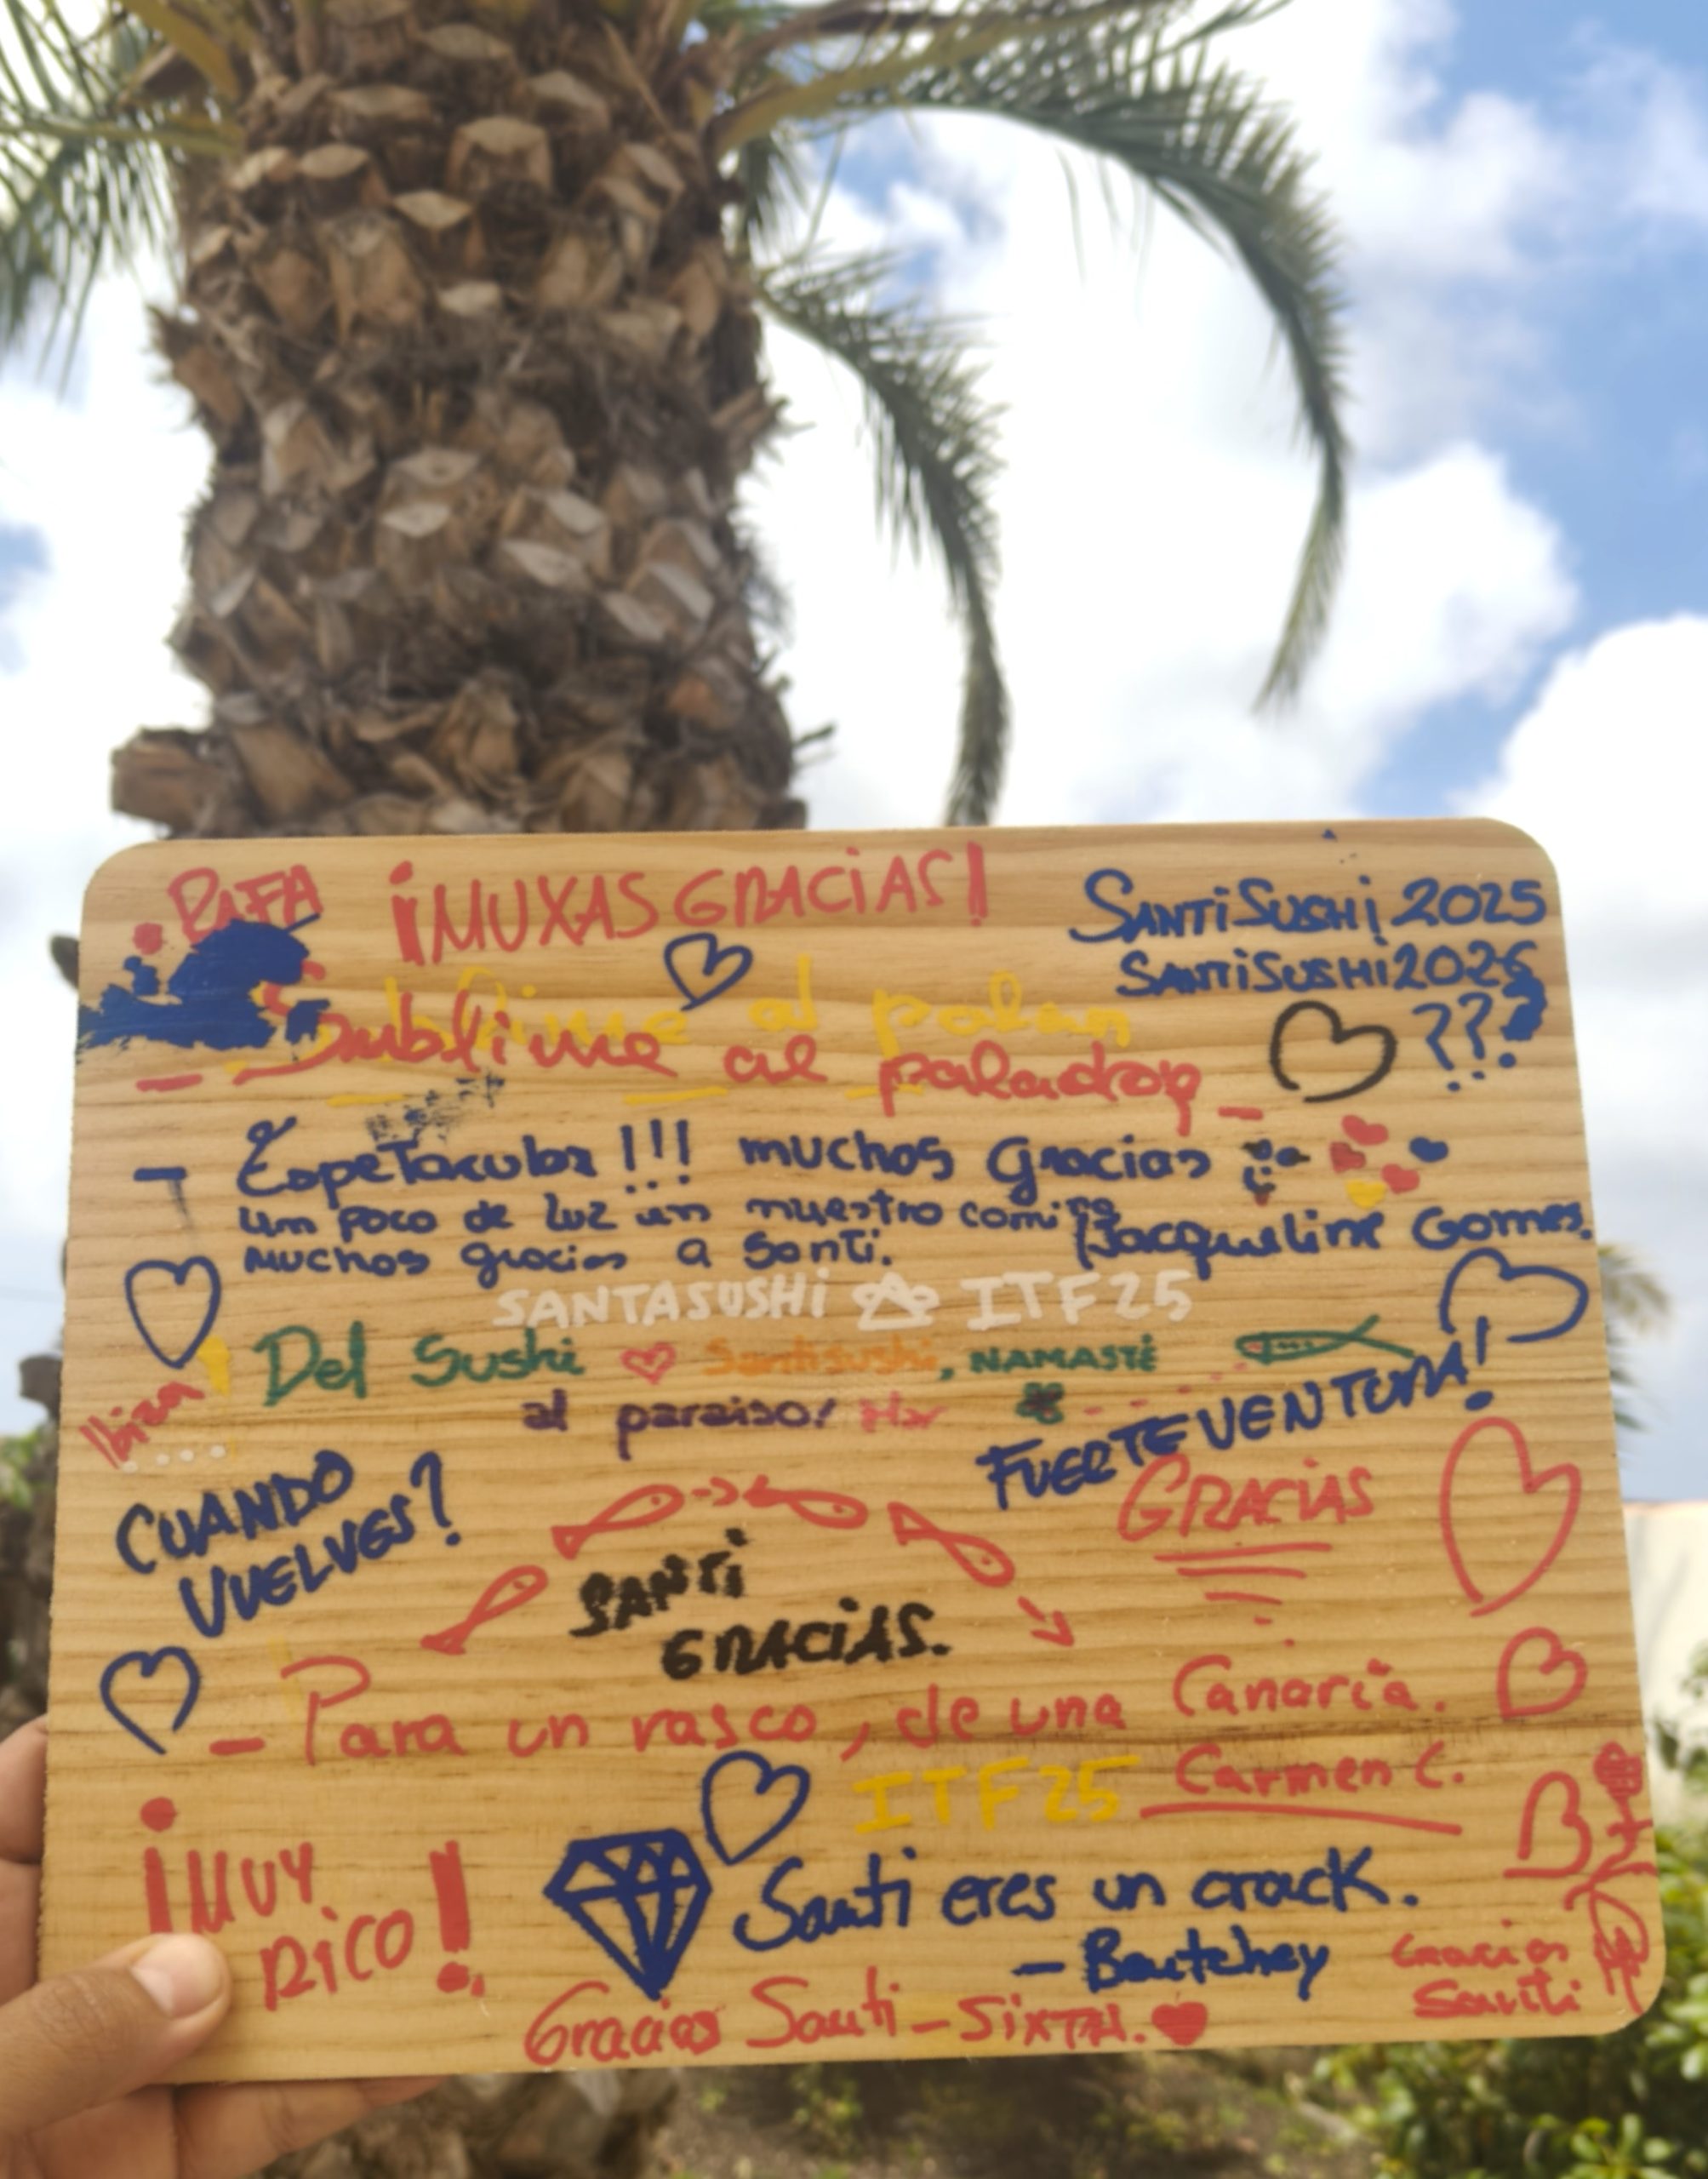 RAFA
¡MUXAS GRACIAS!
SANTISUSHI 2025
SANTISUSHI 2026
???
Sublime al palan
- Sublime al paladar -
- Espetacular !!! muchos gracias
um poco de luz un nuestro comi
Muchos gracias a Santi.
Jacqueline Gomes.
SANTASUSHI ITF25
Del Sushi ♡ Santisushi, NAMASTÉ
al paraiso! Flor
Ibiza
FUERTEVENTURA!
CUANDO
VUELVES?
GRACIAS
SANTI
GRACIAS.
- Para un vasco, de una Canaria.
Carmen C.
ITF25
¡MUY
RICO!
Santi eres un crack.
- Bentchey
Gracias Santi - SIXTH. ♥
Gracias
Santi